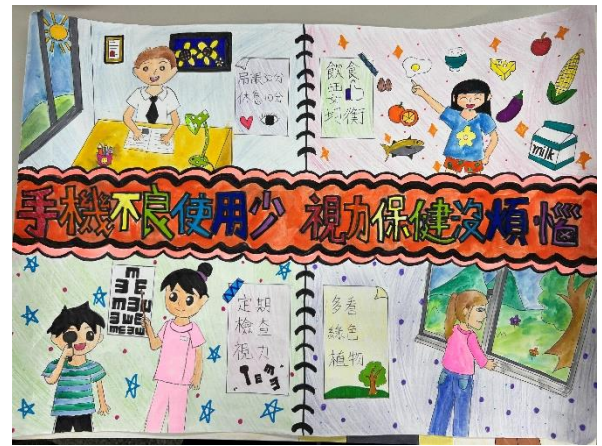 用眼30分
休息10分
飲食
要
均衡
milk
手機不良使用少 視力保健沒煩惱
定期
檢查
視力
多看
綠色
植物